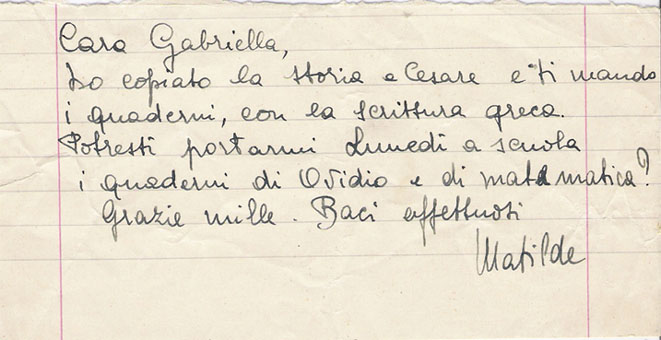 Cara Gabriella,
ho copiato la storia e Cesare e ti mando
i quaderni, con la scrittura greca.
Potresti portarmi Lunedì a scuola
i quaderni di Ovidio e di matematica?
Grazie mille. Baci affettuosi
Matilde